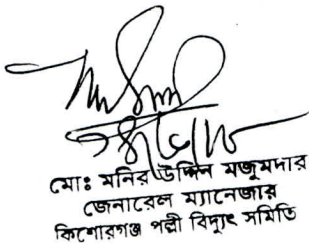 মোঃ মনির উদ্দিন মজুমদার
জেনারেল ম্যানেজার
কিশোরগঞ্জ পল্লী বিদ্যুৎ সমিতি